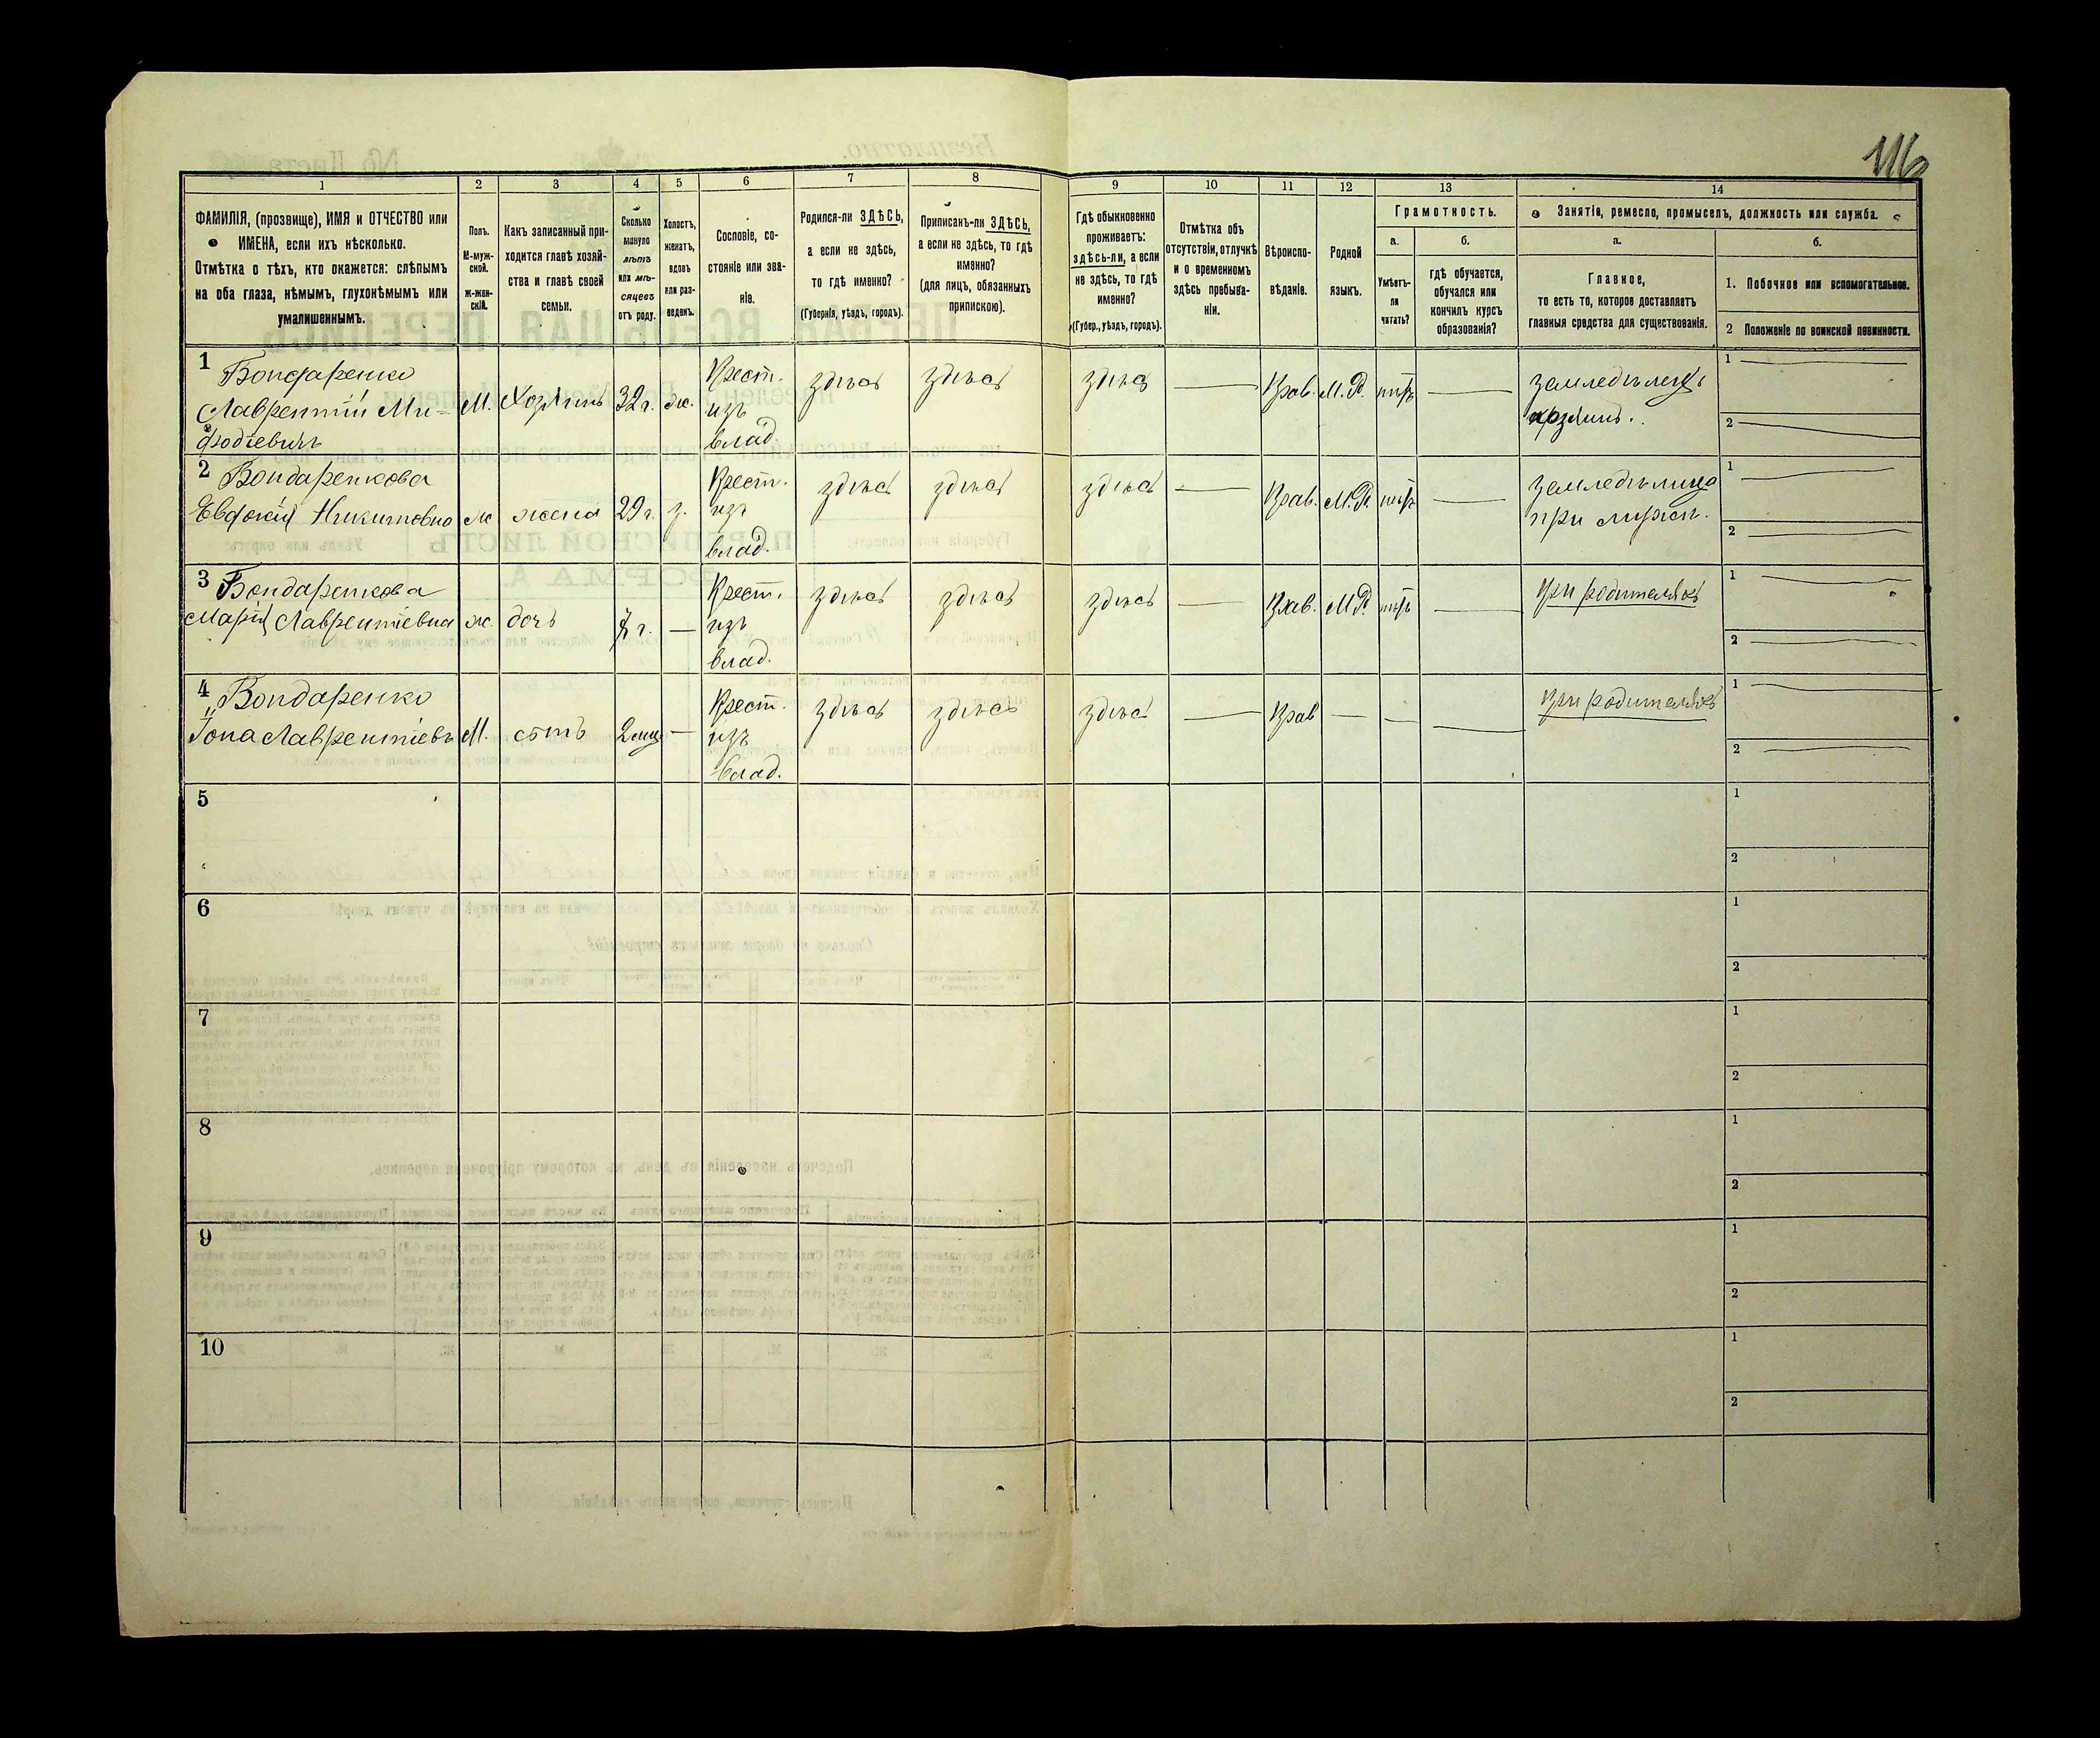 116
1 2 3 4 5 6 7 8 9 10 11 12 13 14
ФАМИЛІЯ, (прозвище), ИМЯ и ОТЧЕСТВО или
ИМЕНА, если ихъ нѣсколько.
Отмѣтка о тѣхъ, кто окажется: слѣпымъ
на оба глаза, нѣмымъ, глухонѣмымъ или
умалишеннымъ.
Полъ.
М-муж-
ской.
Ж-жен-
скій.
Какъ записанный при-
ходится главѣ хозяй-
ства и главѣ своей
семьи.
Сколько
минуло
лѣтъ
или мѣ-
сяцевъ
отъ роду.
Холостъ,
женатъ,
вдовъ
или раз-
веденъ.
Сословіе, со-
стояніе или зва-
ніе.
Родился-ли ЗДѢСЬ,
а если не здѣсь,
то гдѣ именно?
(Губернія, уѣздъ, городъ).
Приписанъ-ли ЗДѢСЬ,
а если не здѣсь, то гдѣ
именно?
(для лицъ, обязанныхъ
припискою).
Гдѣ обыкновенно
проживаетъ:
здѣсь-ли, а если
не здѣсь, то гдѣ
именно?
(Губер., уѣздъ, городъ).
Отмѣтка объ
отсутствіи, отлучкѣ
и о временномъ
здѣсь пребыва-
ніи.
Вѣроиспо-
вѣданіе.
Родной
языкъ.
Грамотность.
а.
Умѣетъ-
ли
читать?
б.
гдѣ обучается,
обучался или
кончилъ курсъ
образованія?
Занятіе, ремесло, промыселъ, должность или служба.
а.
Главное,
то есть то, которое доставляетъ
главныя средства для существованія.
б.
1. Побочное или вспомогательное.
2 Положеніе по воинской повинности.
1 Бондаренко
Лаврентій Ми-
фодіевичъ
М. Хозяинъ 32 г. ж.
Крест.
изъ
влад.
здѣсь здѣсь здѣсь — Прав. М.Р. нѣтъ —
земледѣлецъ
хозяинъ.
1 —
2 —
2 Бондаренкова
Евдокія Никитовна
ж жена 29 г. з.
Крест.
изъ
влад.
здѣсь здѣсь здѣсь — Прав. М.Р. нѣтъ —
земледѣлица
при мужѣ.
1 —
2 —
3 Бондаренкова
Марія Лаврентіевна
ж. дочь г. —
Крест.
изъ
влад.
здѣсь здѣсь здѣсь — Прав. М.Р. нѣтъ —
при родителяхъ
1 —
2 —
4 Бондаренко
Іона Лаврентіевъ
М. сынъ 2 мѣц —
Крест.
изъ
влад.
здѣсь здѣсь здѣсь — Прав — — —
при родителяхъ
1 —
2 —
5
1
2
6
1
2
7
1
2
8
1
2
9
1
2
10
1
2